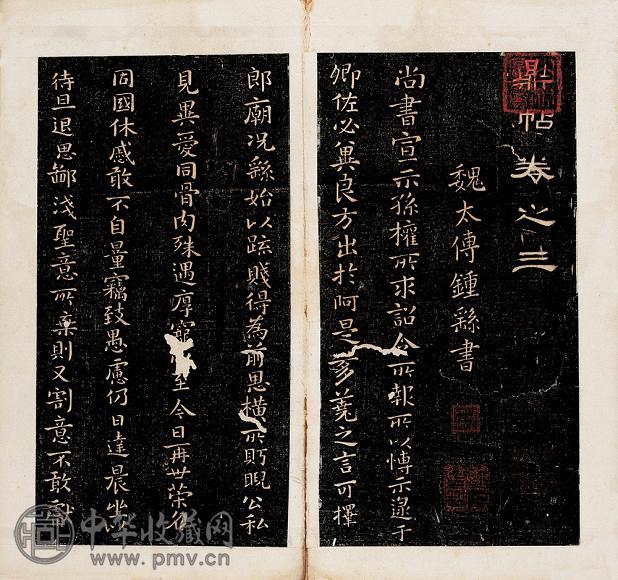 鼎帖卷之三
魏太傅鍾繇書
尚書宣示孫權所求詔令所報所以博示逮于
卿佐必冀良方出於阿是芻蕘之言可擇
郎廟况繇始以疏賤得為前恩橫所眄睨公私
見異愛同骨肉殊遇厚寵至今日再世榮名
同國休慼敢不自量竊致愚慮仍日達晨坐以
待旦退思鄙淺聖意所棄則又割意不敢獻
中华收藏网
www.pmv.cn